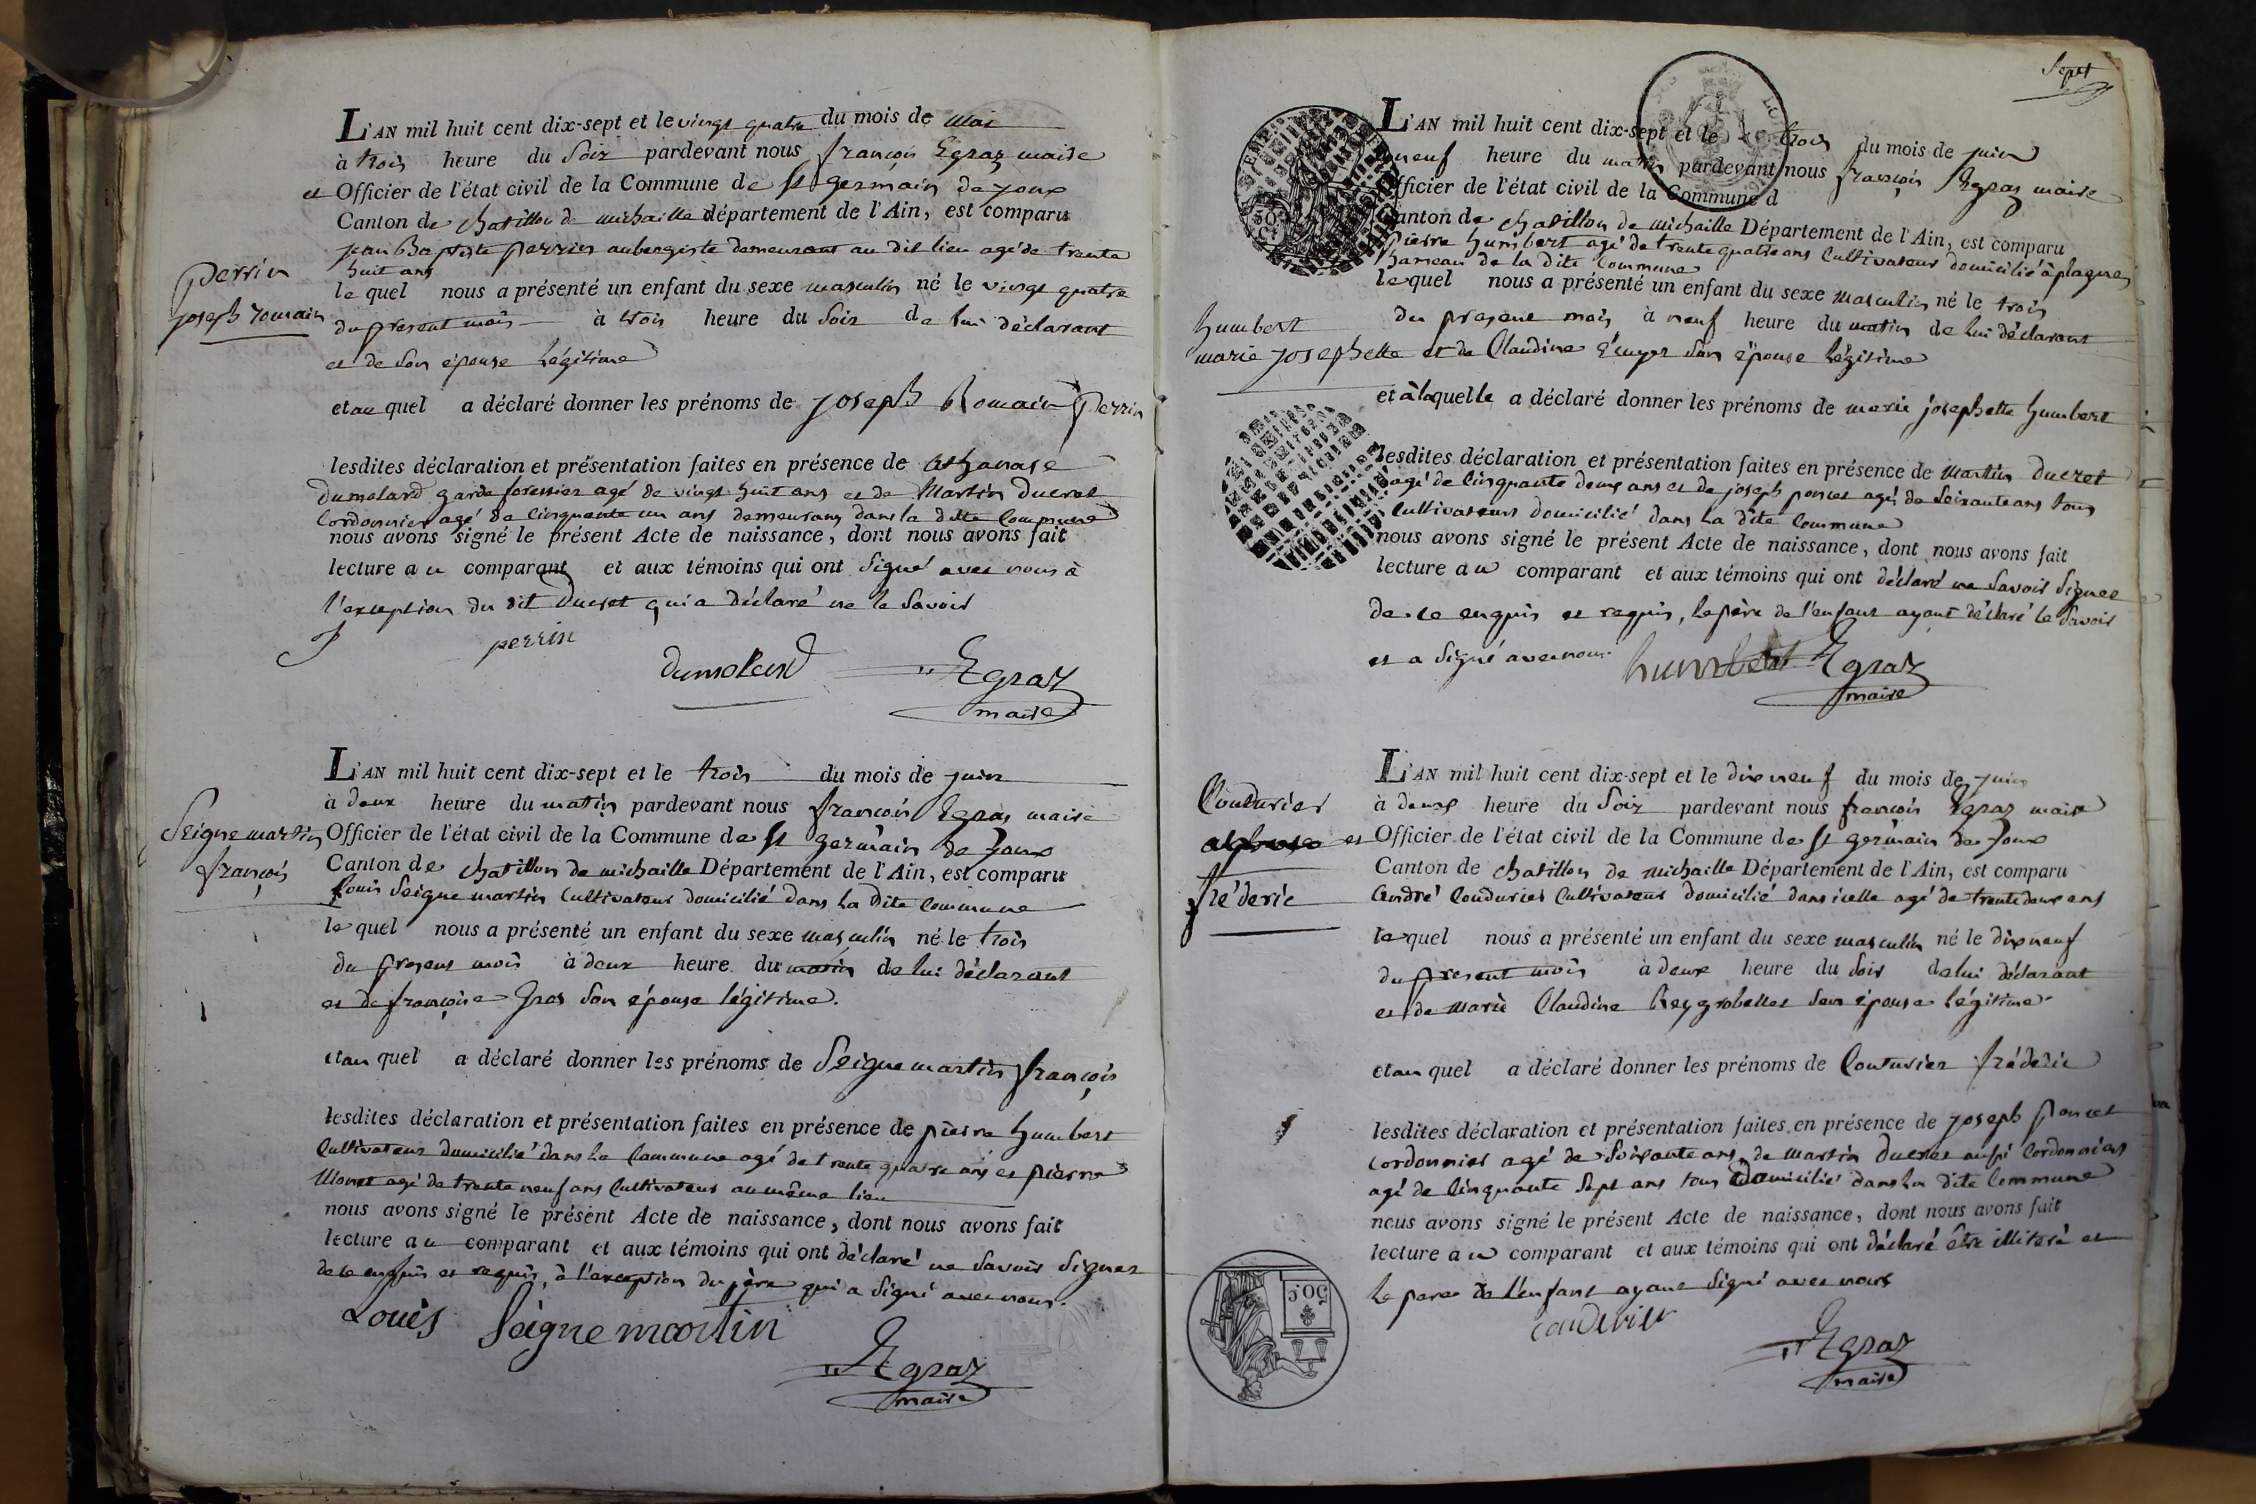 L'AN mil huit cent dix-sept et le vingt quatre du mois de mai
à trois heure du soir pardevant nous françois Egraz maire
et Officier de l'état civil de la Commune de st germain de joux
Canton de chatillon de michaille département de l'Ain, est comparu
jean Baptiste perrin aubergiste demeurant au dit lieu agé de trente
huit ans
le quel nous a présenté un enfant du sexe masculin né le vingt quatre
du present mois à trois heure du soir de lui déclarant
et de son épouse légitime
et au quel a déclaré donner les prénoms de joseph Romain perrin
lesdites déclaration et présentation faites en présence de athanase
dumolard garde forestier agé de vingt huit ans et de Martin Ducret
Cordonnier agé de Cinquante un ans demeurans dans la dite Commune
nous avons signé le présent Acte de naissance, dont nous avons fait
lecture au comparant et aux témoins qui ont signé avec nous à
l'exception du dit Ducret qui a déclaré ne le savoir
perrin
dumolard Egraz
maire
perrin
joseph romain
L'AN mil huit cent dix-sept et le trois du mois de juin
à deux heure du matin pardevant nous françois Egraz maire
Officier de l'état civil de la Commune de st germain de Joux
Canton de chatillon de michaille Département de l'Ain, est comparu
louis Seigne martin Cultivateur domicilié dans la dite Commune
le quel nous a présenté un enfant du sexe masculin né le trois
du present mois à deux heure du matin de lui déclarant
et de françoise Gras son épouse légitime.
et au quel a déclaré donner les prénoms de Seigne martin françois
lesdites déclaration et présentation faites en présence de pierre humbert
Cultivateur domicilié dans la Commune agé de trente quatre ans et pierre
agé de trente neuf ans Cultivateur au même lieu
nous avons signé le présent Acte de naissance, dont nous avons fait
lecture au comparant et aux témoins qui ont déclaré ne savoir signer
de ce enquis et requis, à l'exception du père qui a signé avec nous.
Louis Seigne martin
Egraz
maire
Seigne martin
françois
Sept
L'AN mil huit cent dix-sept et le trois du mois de juin
neuf heure du matin pardevant nous françois Egraz maire
Officier de l'état civil de la Commune d
Canton de chatillon de michaille Département de l'Ain, est comparu
pierre humbert agé de trente quatre ans Cultivateur domicilié à plagnes
hameau de la dite Commune
lequel nous a présenté un enfant du sexe masculin né le trois
du present mois à neuf heure du matin de lui déclarant
et de Claudine son épouse légitime
et à laquelle a déclaré donner les prénoms de marie josephette humbert
lesdites déclaration et présentation faites en présence de Martin Ducret
agé de Cinquante deux ans et de joseph poncet agé de soixante ans tous
Cultivateurs domicilié dans la dite Commune
nous avons signé le présent Acte de naissance, dont nous avons fait
lecture au comparant et aux témoins qui ont déclaré ne savoir signer
de ce enquis et requis, le père de l'enfant ayant déclaré le savoir
et a signé avec nous. humbert Egraz
maire
humbert
marie josephette
L'AN mil huit cent dix-sept et le dix neuf du mois de juin
à deux heure du soir pardevant nous françois Egraz maire
et Officier de l'état civil de la Commune de st germain de Joux
Canton de chatillon de michaille Département de l'Ain, est comparu
andré Couturier Cultivateur domicilié dans icelle agé de trente deux ans
le quel nous a présenté un enfant du sexe masculin né le dix neuf
du present mois à deux heure du soir de lui déclarant
et de marie Claudine son épouse légitime
et au quel a déclaré donner les prénoms de Couturier fréderic
lesdites déclaration et présentation faites en présence de joseph poncet
cordonnier agé de soixante ans, de martin ducret aussi Cordonnier
agé de Cinquante sept ans tous domicilié dans la dite Commune
nous avons signé le présent Acte de naissance, dont nous avons fait
lecture au comparant et aux témoins qui ont déclaré être illiteré et
le pere de l'enfant ayant signé avec nous
Egraz
maire
Couturier
alphonse
fréderic
50 C